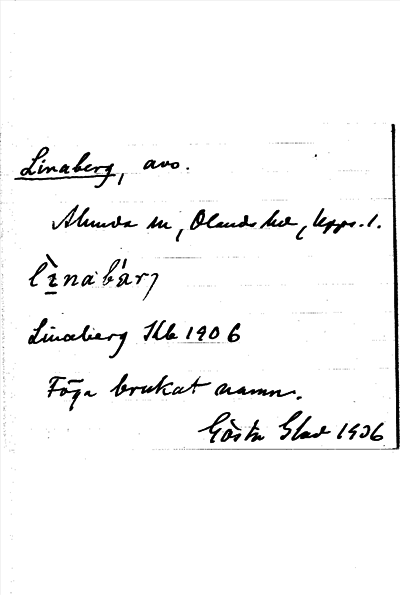 Linaberg, avs.
Alunda sn, Olands hd, Upps. l.
lìnabárj
Linaberg Skb 1906
Föga brukat namn.
Gösta Glad 1936